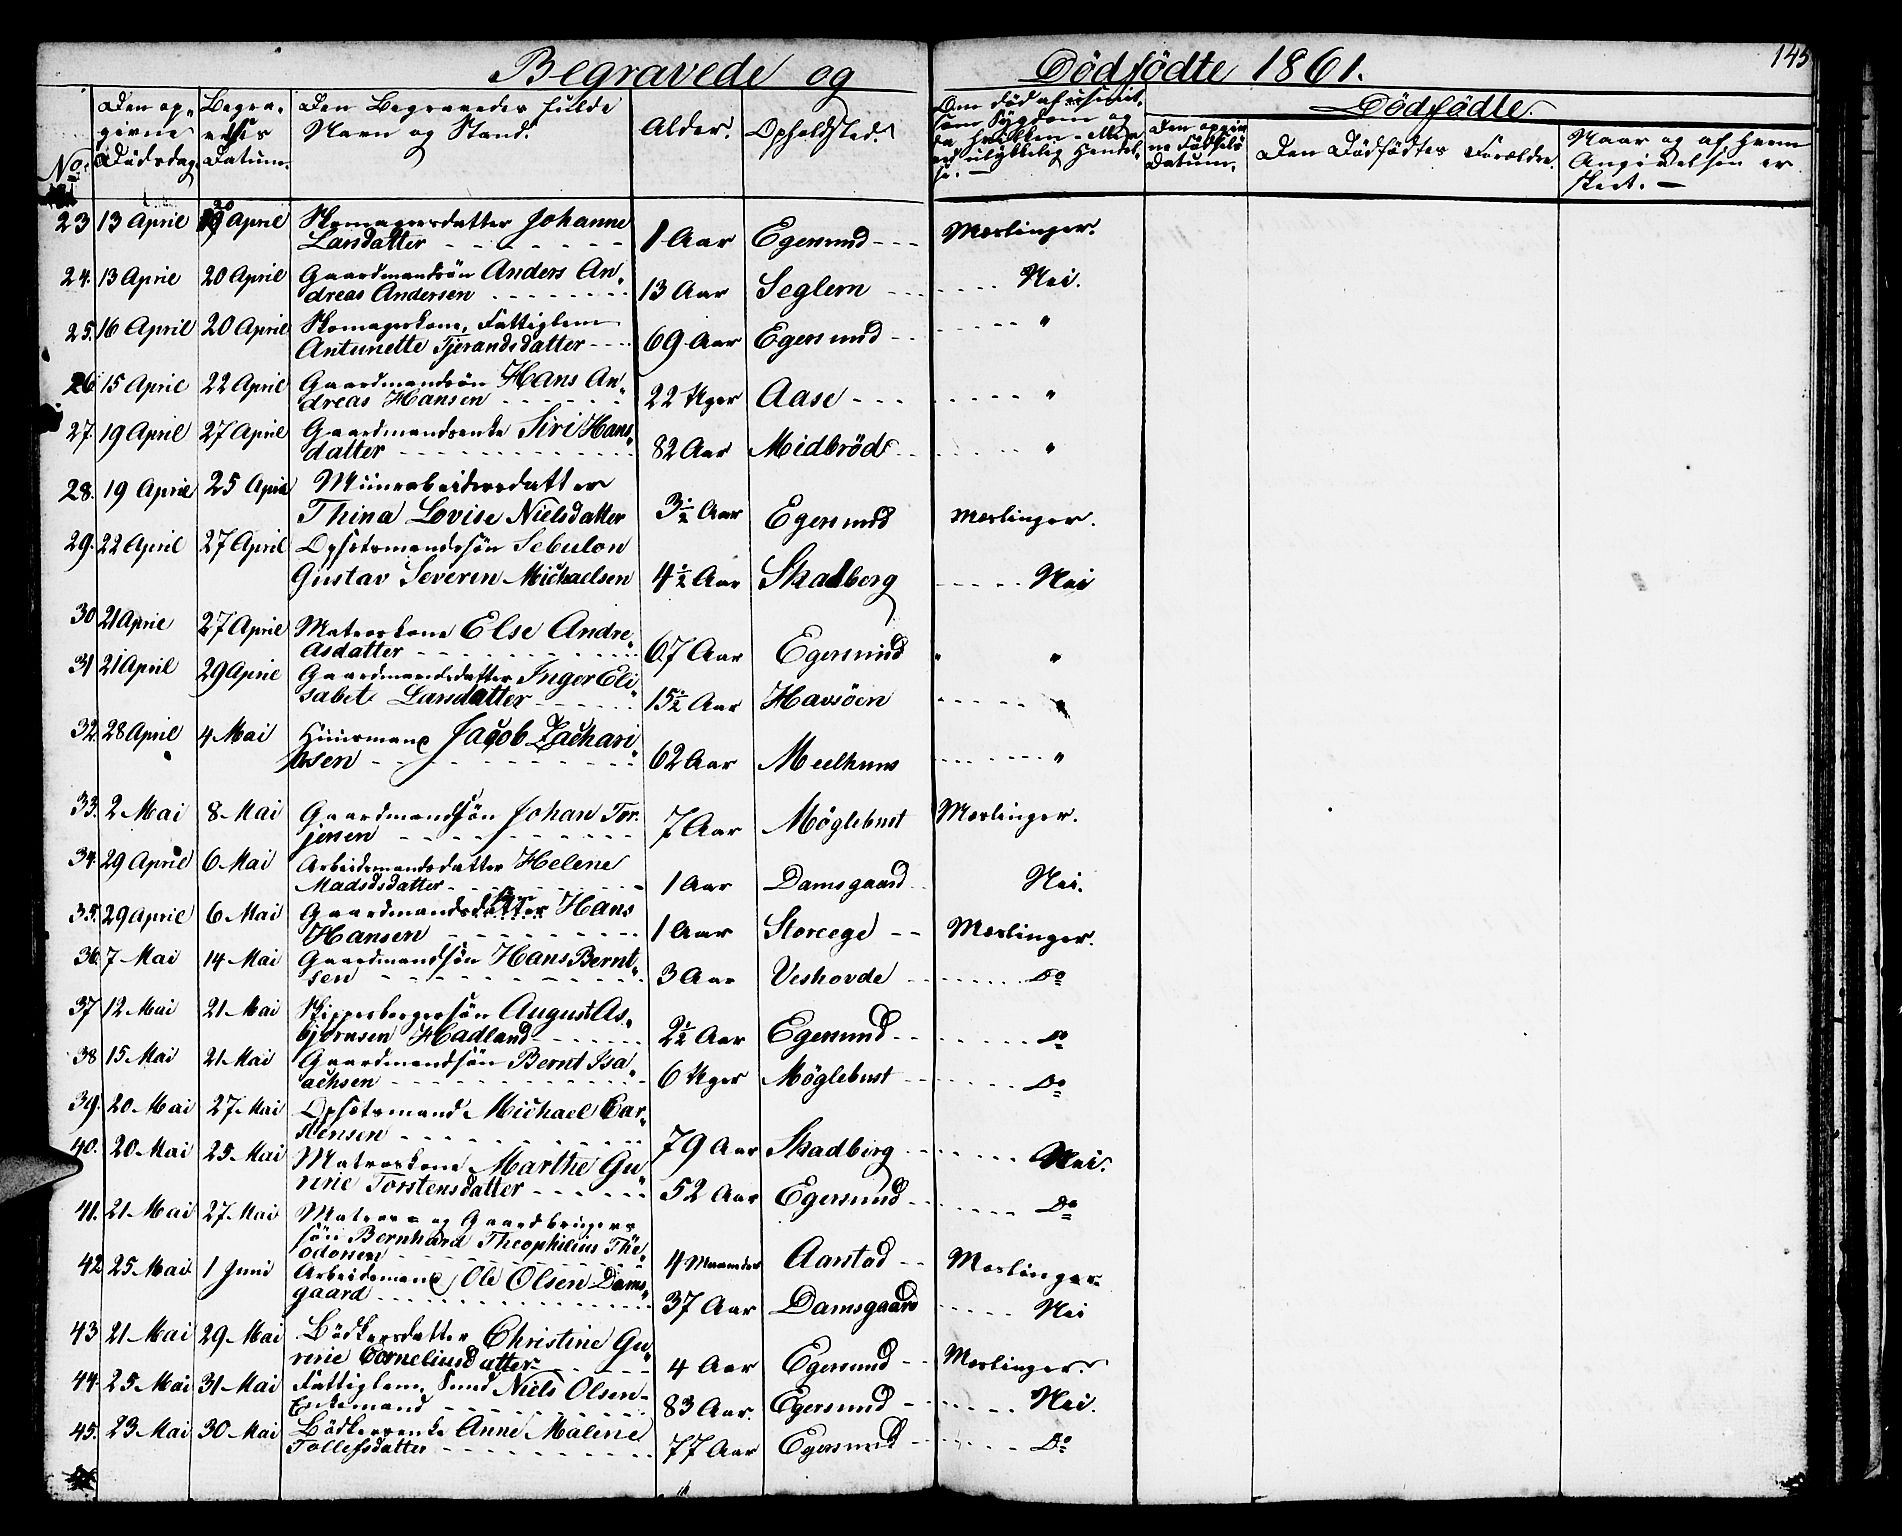 Begravede og Dödfödte 1861.
145
No.
Den op-
givne
Dödsdag.
Begra-
velses
Datum.
Den Begravedes fulde
Navn og Stand.
Alder.
Opholdsted.
Den opgiv
ne Födsels
Datum.
Dödfödte.
Den Dödfödtes Forældre.
Naar og af hvem
Angivelsen er
skeet. —
23 13 April 20 April Skomagersdatter Johanne
Larsdatter 1 Aar Egersund Meslinger.
24. 13 April 20 April Gaardmandsön Anders An-
dreas Andersen 13 Aar Seglem Nei.
25. 16 April 20 April Skomagerkone, Fattiglem
Antunette Tjerandsdatter 69 Aar Egersund "
26 15 April 22 April Gaardmandsön Hans An-
dreas Hansen 22 Uger Aase "
27. 19 April 27 April Gaardmandsenke Siri Hans-
datter 82 Aar Midbröd "
28. 19 April 25 April Muurarbeidersdatter
Thina Lovise Nielsdatter 3½ Aar Egersund Meslinger.
29. 22 April 27 April Opsitsmandssön Sebulon
Gustav Severin Michaelsen 4½ Aar Skadberg Nei
30 21 April 27 April Matroskone Else Andre-
asdatter 67 Aar Egersund " "
31 21 April 29 April Gaardmandsdatter Inger Eli-
sabet Larsdatter 15½ Aar Havsöen "
32. 28 April 4 Mai Huusmand Jacob Zachari-
asen 62 Aar Meelhuus "
33. 2 Mai 8 Mai Gaardmandsön Johan Tor-
jesen 7 Aar Möglebust Meslinger.
34. 29 April 6 Mai Arbeidsmandsdatter Helene
Madsdsdatter 1 Aar Damsgaard Nei.
35. 29 April 6 Mai Gaardmandsdatter sön Hans
Hansen 1 Aar Storeege Meslinger.
36. 7 Mai 14 Mai Gaardmandsön Hans Bernt-
sen 3 Aar Veshovde Do
37 12 Mai 21 Mai Skipperborgersön August As-
björnsen Hadland 2½ Aar Egersund Do
38 15 Mai 21 Mai Gaardmandsön Bernt Isa-
achsen 6 Uger Möglebust Do
39. 20 Mai 27 Mai Opsitsmand Michael Car-
stensen 79 Aar Skadberg Nei.
40. 20 Mai 25 Mai Matroskone Marthe Gu-
rine Torstensdatter 52 Aar Egersund Do
41. 21 Mai 27 Mai Matros- og Gaardbrugers
sön Bernhard Theophilius The-
odorsen 4 Maaneder Aarstad Meslinger
42 25 Mai 1 Juni Arbeidsmand Ole Olsen Dams-
gaard 37 Aar Damsgaard Nei
43 21 Mai 29 Mai Bödkersdatter Christine Gu-
rine Corneliusdatter 4 Aar Egersund Meslinger.
44. 25 Mai 31 Mai Fattiglem, Niels Olsen
Enkemand 83 Aar. Egersund Nei.
45. 23 Mai 30 Mai Bödkerenke Anne Malene
Tollefsdatter 77 Aar Egersund Do